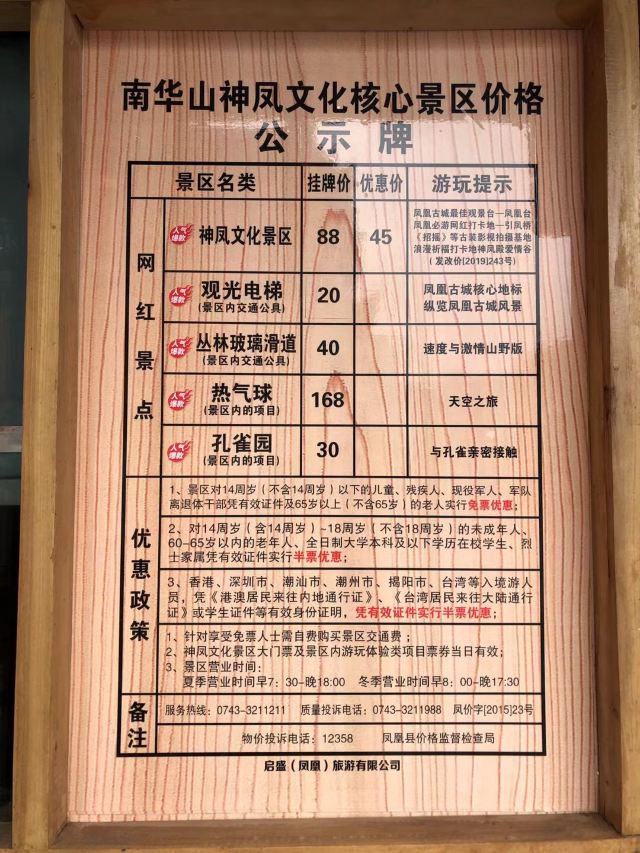 南华山神凤文化核心景区价格
公示牌
景区名类 挂牌价 优惠价 游玩提示
网红景点
人气爆款 神凤文化景区 88 45
凤凰古城最佳观景台—凤凰台
凤凰必游网红打卡地—引凤桥
《招摇》等古装影视拍摄基地
浪漫祈福打卡地神凤殿爱情谷
(发改价[2019]243号)
人气爆款 观光电梯 20 凤凰古城核心地标
(景区内交通公具) 纵览凤凰古城风景
人气爆款 丛林玻璃滑道 40 速度与激情山野版
(景区内交通公具)
人气爆款 热气球 168 天空之旅
(景区内的项目)
人气爆款 孔雀园 30 与孔雀亲密接触
(景区内的项目)
优惠政策
1、景区对14周岁(不含14周岁)以下的儿童、残疾人、现役军人、军队
离退体干部凭有效证件及65岁以上(不含65岁)的老人实行免票优惠;
2、对14周岁(含14周岁)~18周岁(不含18周岁)的未成年人、
60-65岁以内的老年人、全日制大学本科及以下学历在校学生、烈
士家属凭有效证件实行半票优惠;
3、香港、深圳市、潮汕市、潮州市、揭阳市、台湾等入境游人
员,凭《港澳居民来往内地通行证》、《台湾居民来往大陆通行
证》或学生证件等有效身份证明,凭有效证件实行半票优惠;
1、针对享受免票人士需自费购买景区交通费;
2、神凤文化景区大门票及景区内游玩体验类项目票券当日有效;
3、景区营业时间:
夏季营业时间早7:30-晚18:00 冬季营业时间早8:00-晚17:30
备注
服务热线:0743-3211211 质量投诉电话:0743-3211988 凤价字[2015]23号
物价投诉电话:12358 凤凰县价格监督检查局
启盛(凤凰)旅游有限公司